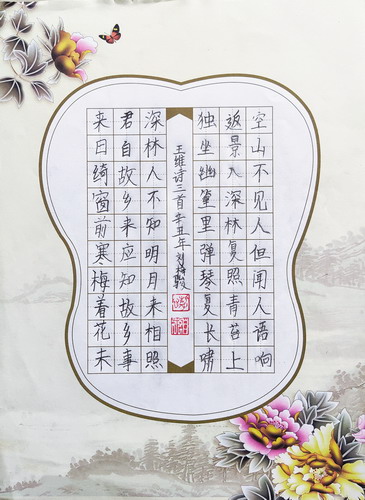 空山不见人但闻人语响
返景入深林复照青苔上
独坐幽篁里弹琴复长啸
王维诗三首辛丑年刘梅
深林人不知明月来相照
君自故乡来应知故乡事
来日绮窗前寒梅着花未